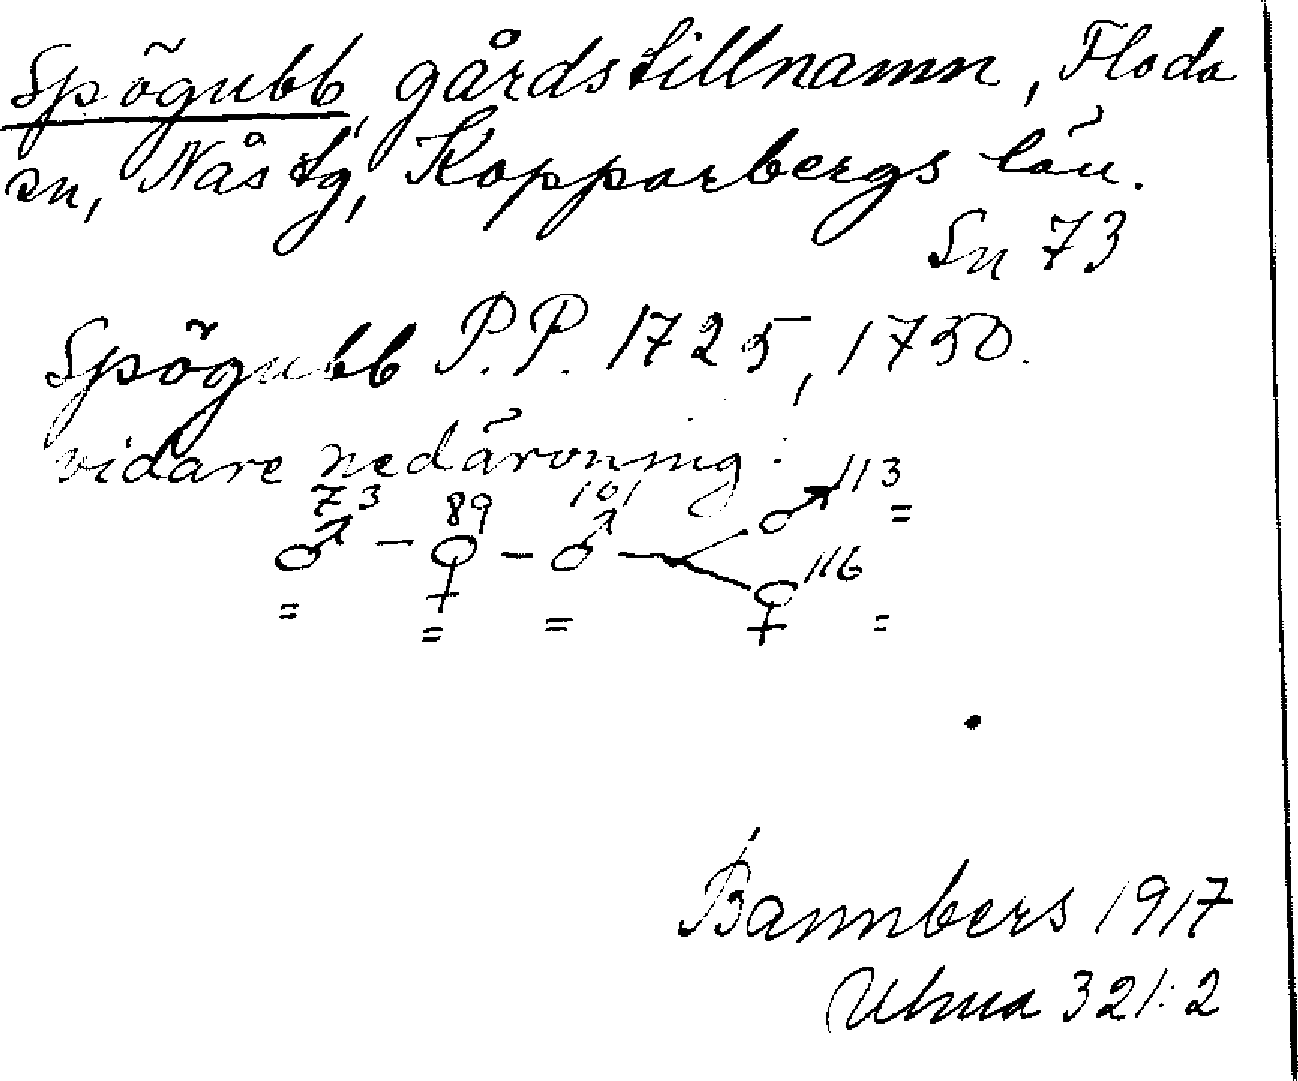 Spögubb, gårdstillnamn, Floda
sn, Nås tg, Kopparbergs län.
Sn 73
Spögubb P.P. 1725, 1750.
vidare nedärvning:
♂73 – ♀89 – ♂101 – ♂113 =
♀116
= = = =
Bannbers 1917
Ulma 321:2